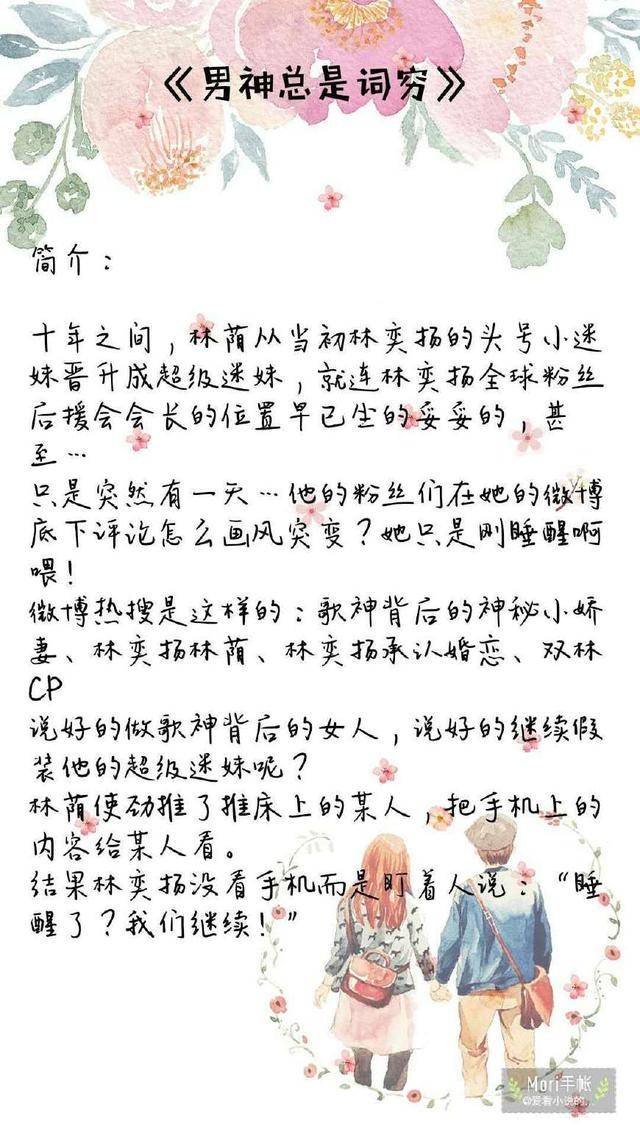 《男神总是词穷》
简介：
十年之间，林荫从当初林奕扬的头号小迷
妹晋升成超级迷妹，就连林奕扬全球粉丝
后援会会长的位置早已坐的妥妥的，甚
至…
只是突然有一天…他的粉丝们在她的微博
底下评论怎么画风突变？她只是刚睡醒啊
喂！
微博热搜是这样的：歌神背后的神秘小娇
妻、林奕扬林荫、林奕扬承认婚恋、双林
CP
说好的做歌神背后的女人，说好的继续假
装他的超级迷妹呢？
林荫使劲推了推床上的某人，把手机上的
内容给某人看。
结果林奕扬没看手机而是盯着人说：“睡
醒了？我们继续！”
Mori手帐
@爱看小说的...